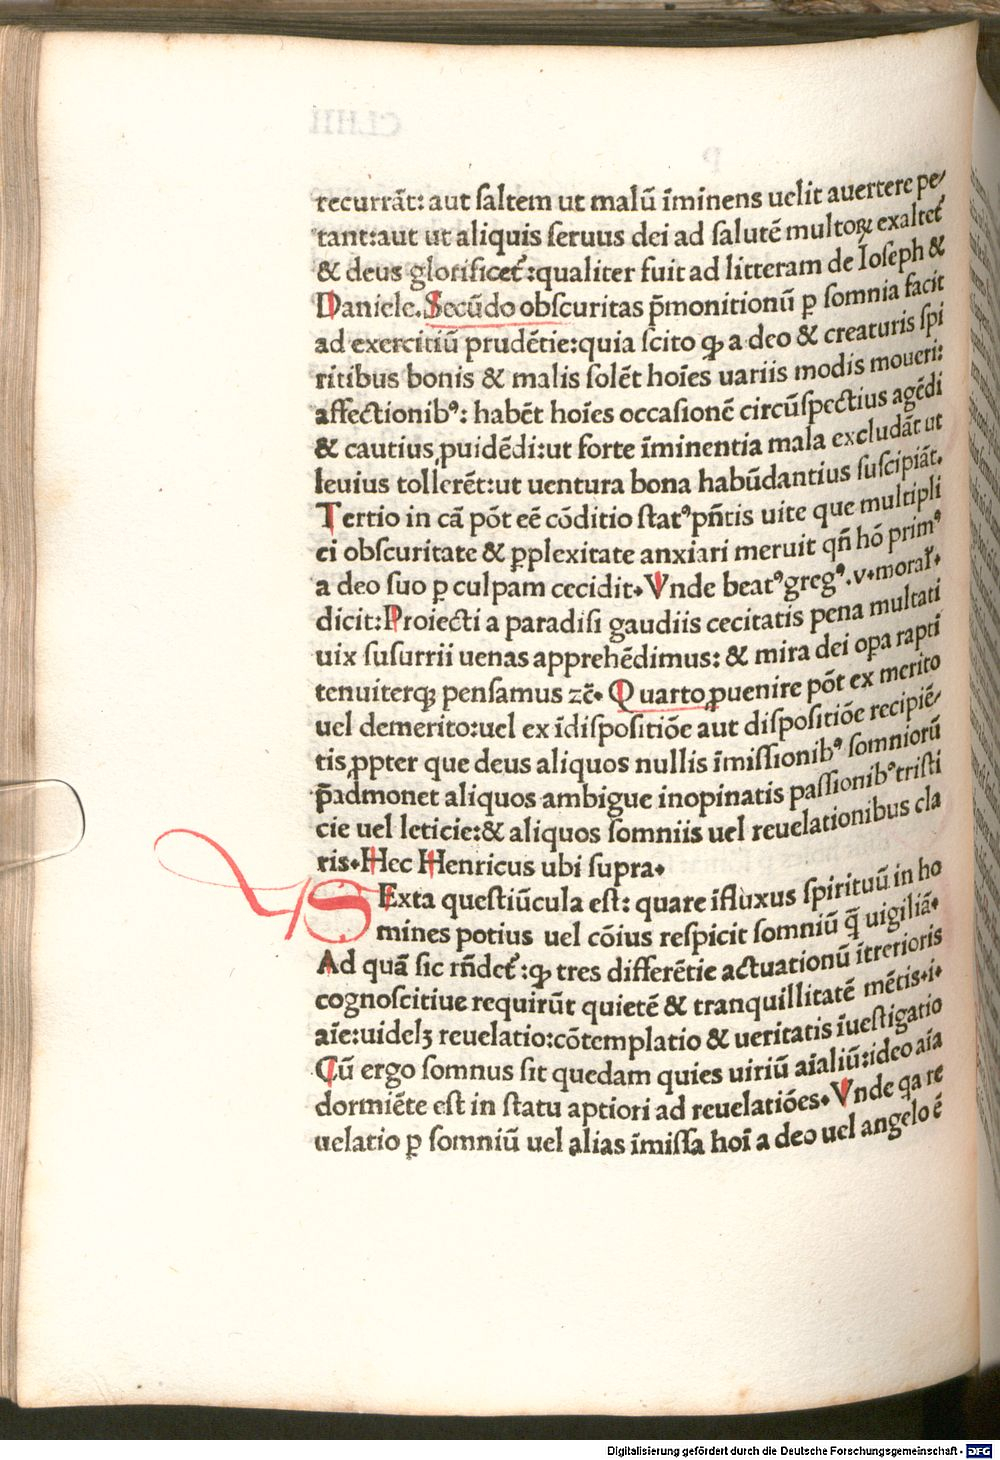 recurrāt: aut ſaltem ut malū īminens uelit auertere pe-
tant:aut ut aliquis ſeruus dei ad ſalutē multoꝝ exaltet᷑
& deus glorificet᷑:qualiter fuit ad litteram de Ioſeph &
Daniele. Secūdo obſcuritas p̄monitionū ꝑ ſomnia facit
ad exercitiū prudētie:quia ſcito ꝙ a deo & creaturis ſpi
ritibus bonis & malis ſolēt hoīes uariis modis moueri:
affectionibꝰ: habēt hoīes occaſionē circūſpectius agēdi
& cautius ꝓuidēdi:ut forte īminentia mala excludāt ut
leuius tollerēt:ut uentura bona habūdantius ſuſcipiāt.
Tertio in cā pōt eē cōditio ſtatꝰ pñtis uite que multipli
ci obſcuritate & ꝑplexitate anxiari meruit qñ hō primꝰ
a deo ſuo ꝑ culpam cecidit. Vnde beatꝰ gregꝰ. v. moral̄.
dicit: Proiecti a paradiſi gaudiis cecitatis pena multati
uix ſuſurrii uenas apprehēdimus: & mira dei oꝑa rapti
tenuiterqꝫ penſamus zc̄. Quarto ꝓuenire pōt ex merito
uel demerito:uel ex īdiſpoſitiōe aut diſpoſitiōe recipiē-
tis ꝓpter que deus aliquos nullis īmiſſionibꝰ ſomniorū
p̄admonet aliquos ambigue inopinatis paſſionibꝰ triſti
cie uel leticie:& aliquos ſomniis uel reuelationibus cla
ris. Hec Henricus ubi ſupra.
SExta queſtiūcula eſt: quare īfluxus ſpirituū in ho
mines potius uel cōius reſpicit ſomniū q̄ uigiliā.
Ad quā ſic rñdet᷑:ꝙ tres differētie actuationū ītrerioris
cognoſcitiue requirūt quietē & tranquillitatē mētis.i.
aīe:uidelꝫ reuelatio:cōtemplatio & ueritatis īueſtigatio
Cū ergo ſomnus ſit quedam quies uiriū aīaliū:ideo aīa
dormiēte eſt in ſtatu aptiori ad reuelatiōes. Vnde qa re
uelatio ꝑ ſomniū uel alias īmiſſa hoī a deo uel angelo ē
Digitalisierung gefördert durch die Deutsche Forschungsgemeinschaft - DFG